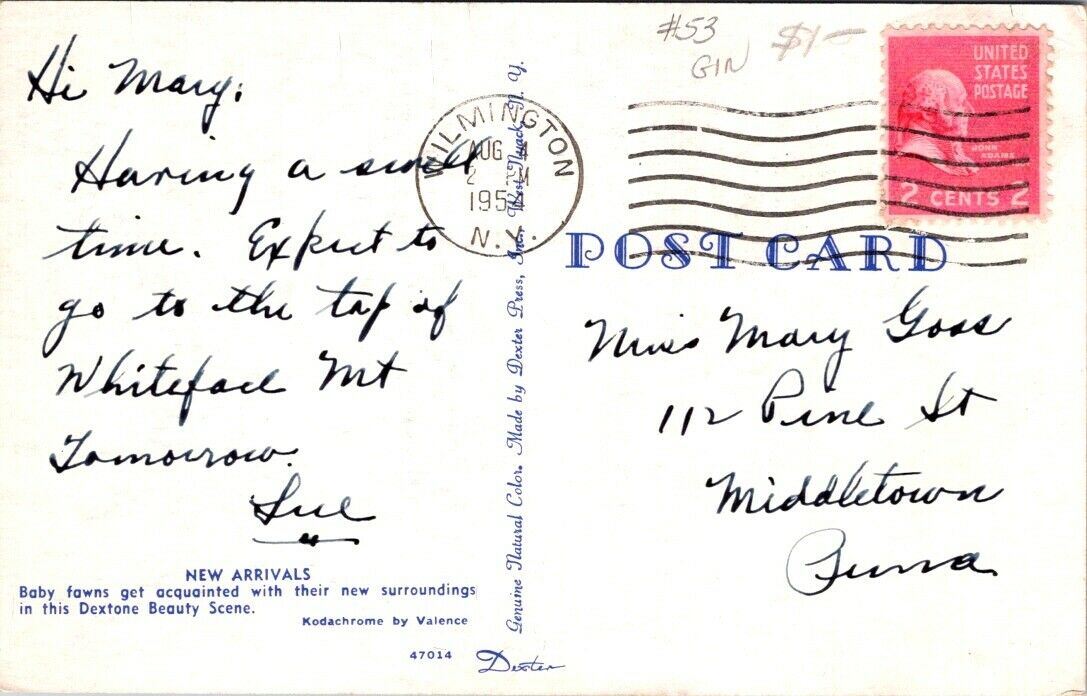 #53
$1-
GIN
Hi Mary;
Having a swell
time. Expect to
go to the top of
Whiteface Mt
Tomorrow.
Sue
NEW ARRIVALS
Baby fawns get acquainted with their new surroundings
in this Dextone Beauty Scene.
Kodachrome by Valence
47014
Dexter
Genuine Natural Color. Made by Dexter Press, Inc. West Nyack, N. Y.
WILMINGTON
AUG 4
2 PM
1954
N.Y.
UNITED
STATES
POSTAGE
JOHN
ADAMS
2 CENTS 2
POST CARD
Miss Mary Goss
112 Pine St
Middletown
Penna